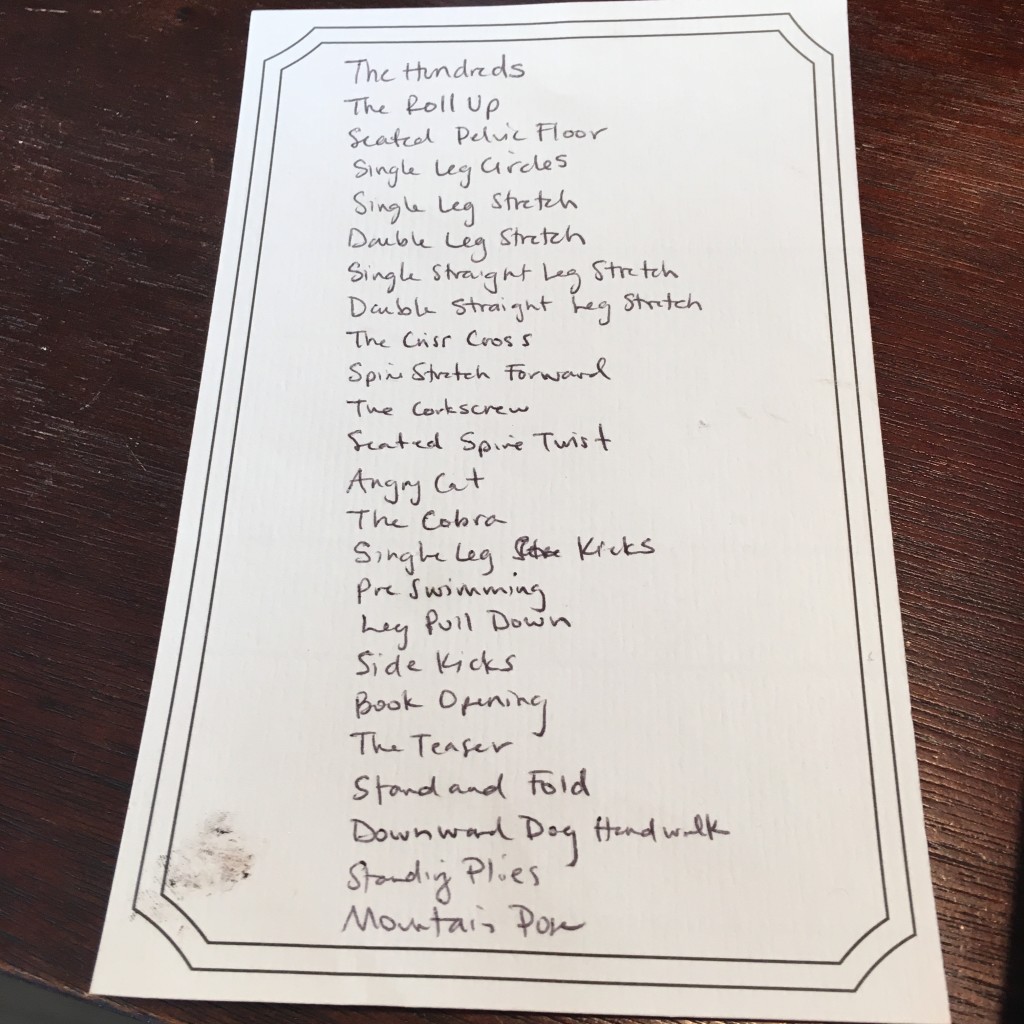 The Hundreds
The Roll Up
Seated Pelvic Floor
Single Leg Circles
Single Leg Stretch
Double Leg Stretch
Single Straight Leg Stretch
Double Straight Leg Stretch
The Criss Cross
Spine Stretch Forward
The Corkscrew
Seated Spine Twist
Angry Cat
The Cobra
Single Leg Kicks
Pre Swimming
Leg Pull Down
Side Kicks
Book Opening
The Teaser
Stand and Fold
Downward Dog Handwalk
Standing Plies
Mountain Pose